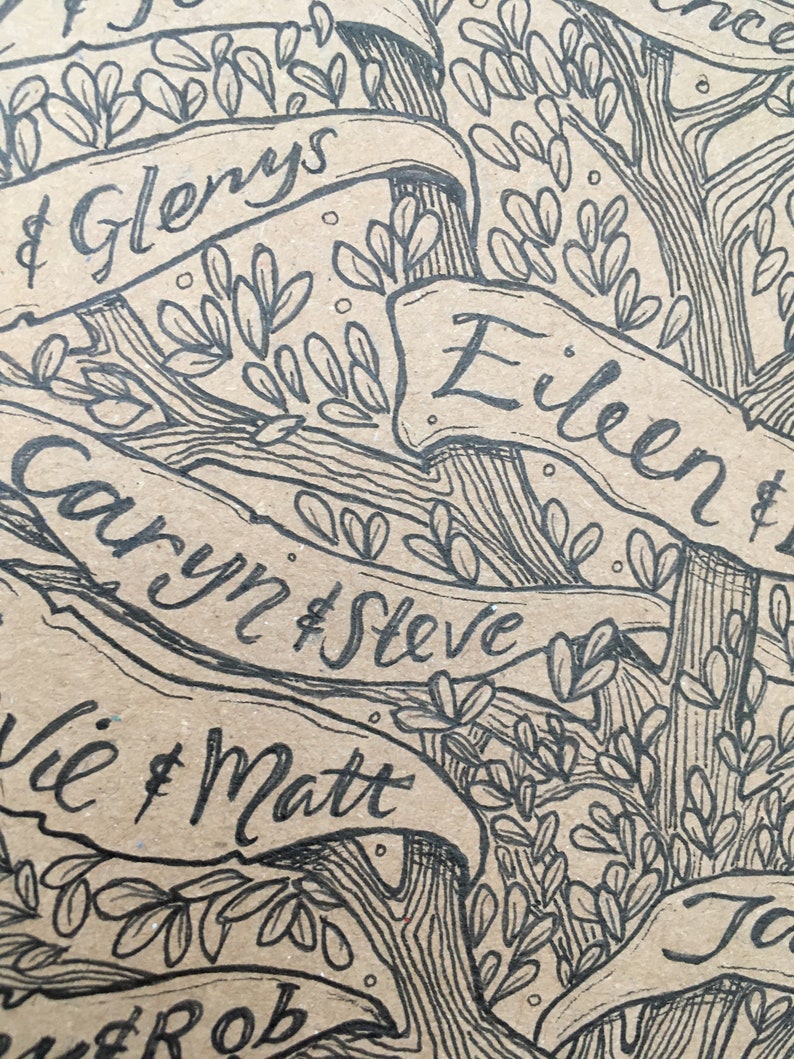 &
& Glenys
Eileen &
Caryn & Steve
& Matt
& Rob